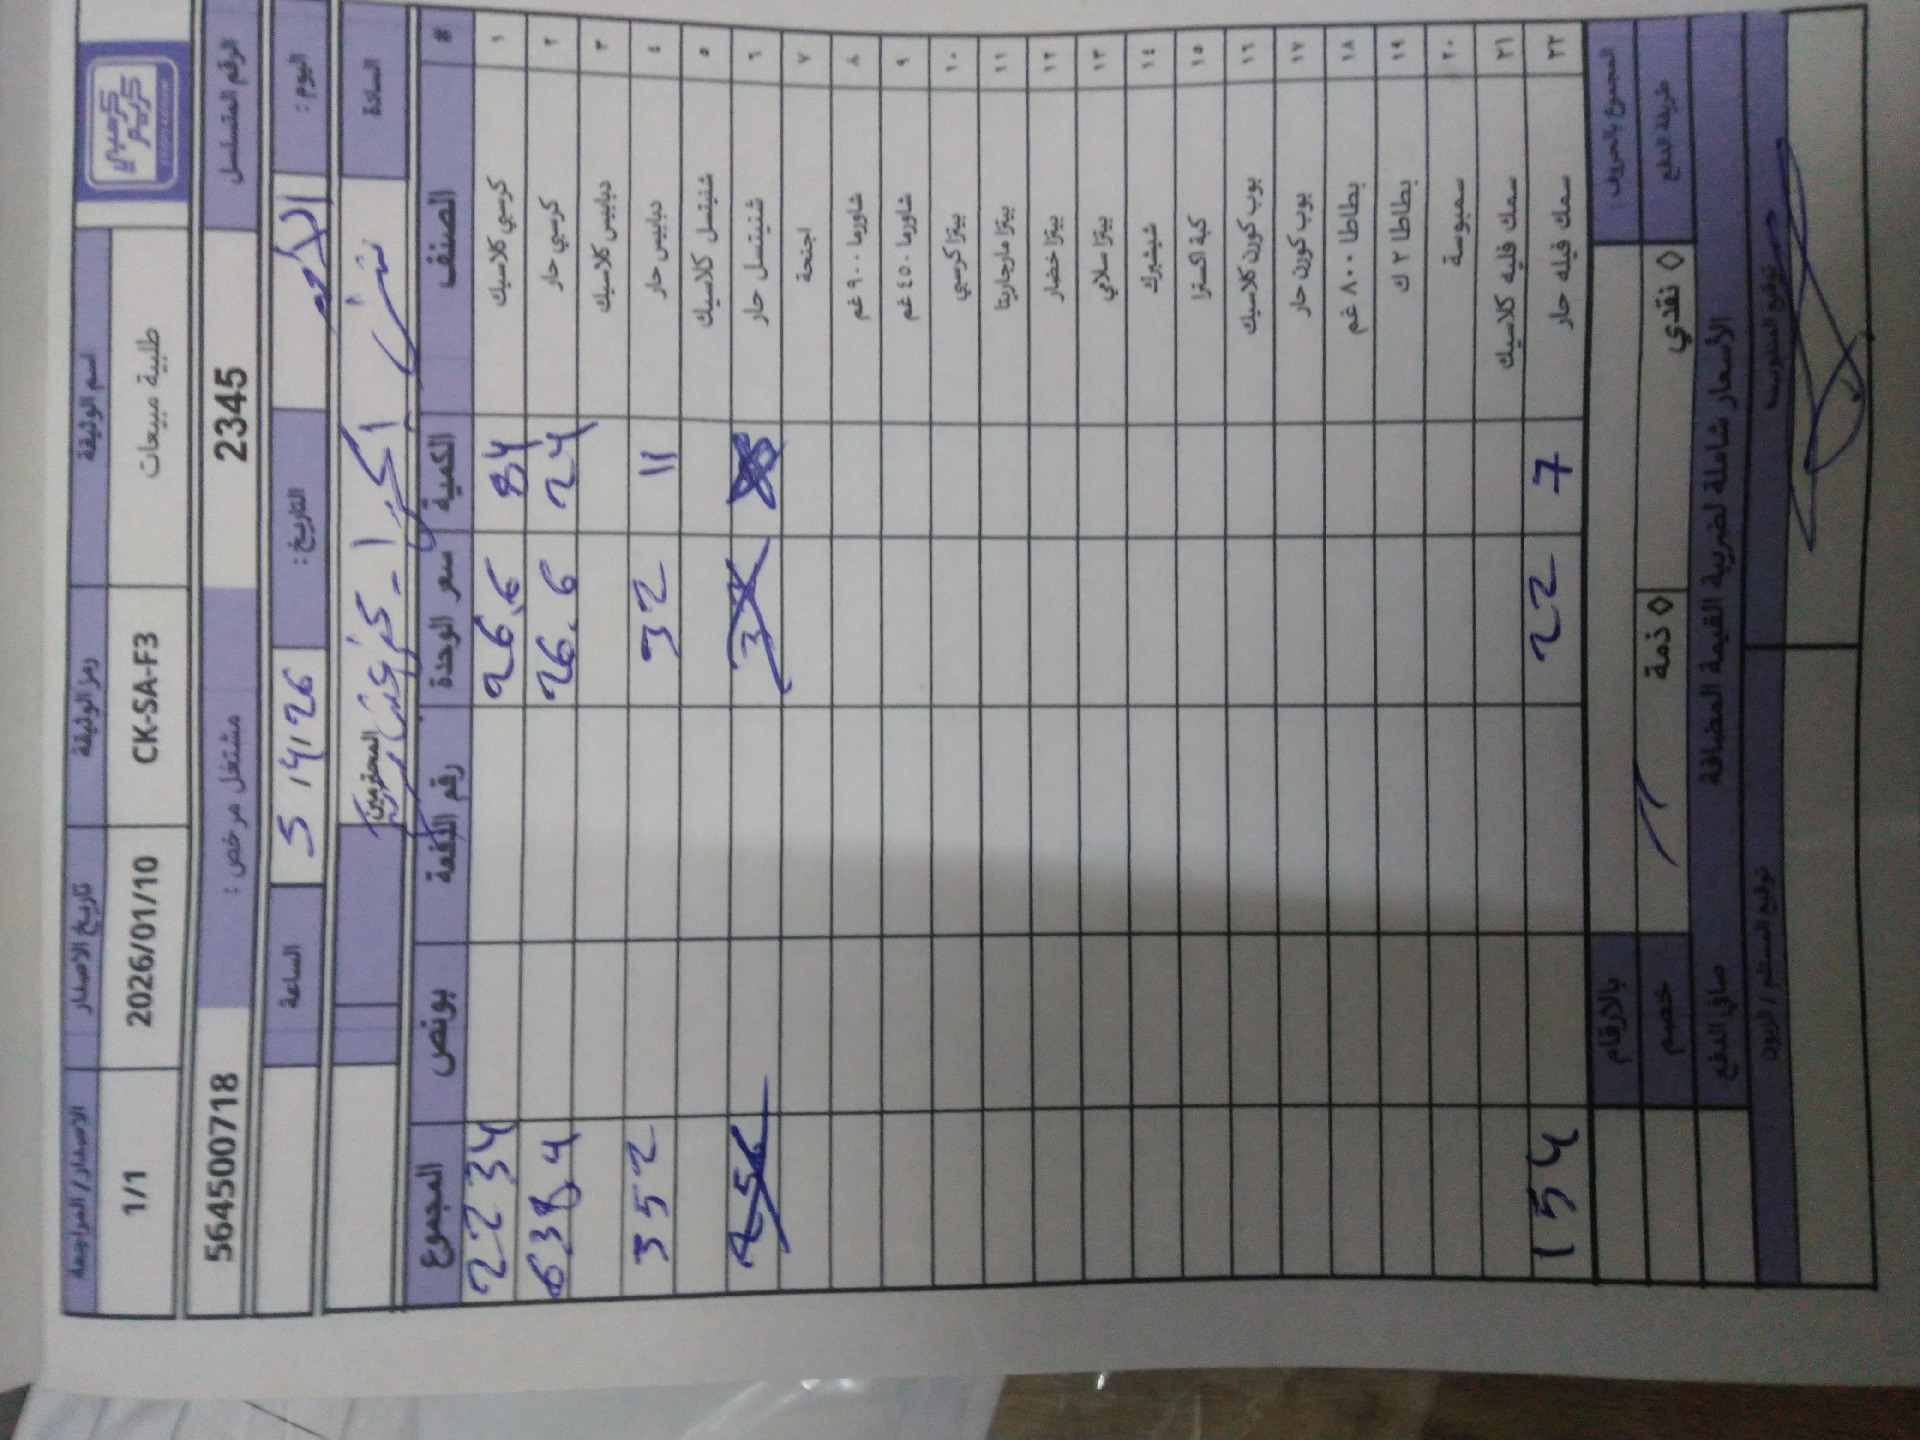 كرسبي كريم
اسم الوثيقة رمز الوثيقة تاريخ الاصدار الاصدار / المراجعة
طلبية مبيعات CK-SA-F3 2026/01/10 1/1
الرقم المتسلسل 2345 مشتغل مرخص : 564500718
اليوم : التاريخ : 5 / 4 / 26 الساعة
السادة المحترمين
# الصنف الكمية سعر الوحدة رقم الدفعة بونص المجموع
١ كرسبي كلاسيك 84 26.6 2234
٢ كرسبي حار 24 26.6 638.4
٣ دبابيس كلاسيك
٤ دبابيس حار 11 32 352
٥ شنيتسل كلاسيك
٦ شنيتسل حار
٧ اجنحة
٨ شاورما ٩٠٠ غم
٩ شاورما ٤٥٠ غم
١٠ بيتزا كرسبي
١١ بيتزا مارجاريتا
١٢ بيتزا خضار
١٣ بيتزا سلامي
١٤ شيشبرك
١٥ كبة اكسترا
١٦ بوب كورن كلاسيك
١٧ بوب كورن حار
١٨ بطاطا ٨٠٠ غم
١٩ بطاطا ٢ ك
٢٠ سمبوسة
٢١ سمك فيليه كلاسيك
٢٢ سمك فيله حار 7 22 154
المجموع بالحروف : بالارقام
طريقة الدفع ◊ نقدي ◊ ذمة خصم
الأسعار شاملة لضريبة القيمة المضافة صافي الدفع
توقيع المستلم / الزبون